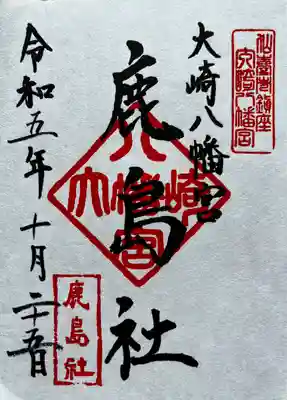 大崎八幡宮
大崎八幡宮
鹿島社
大崎八幡宮
令和五年十月二十五日
鹿島社